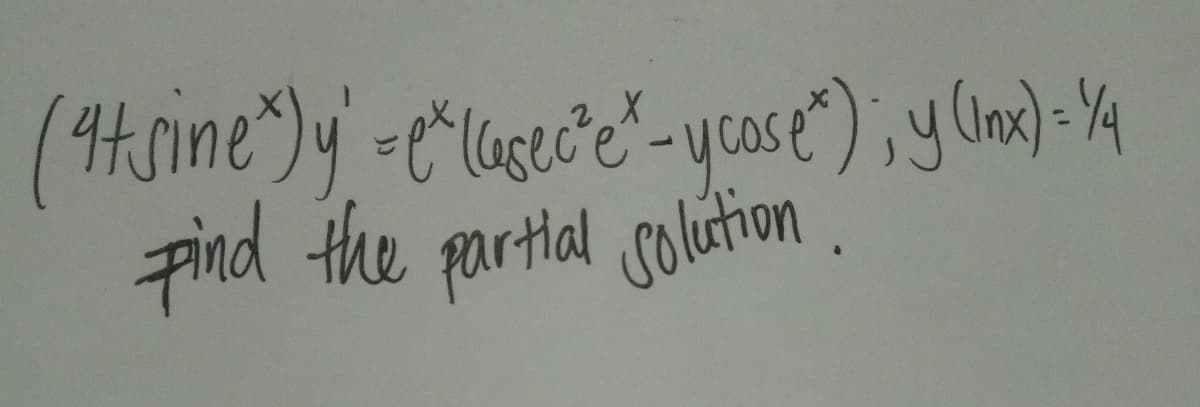 (4+sine^x)y' = e^x(cosec²e^x - ycose^x); y(lnx) = 1/4
Find the partial solution.